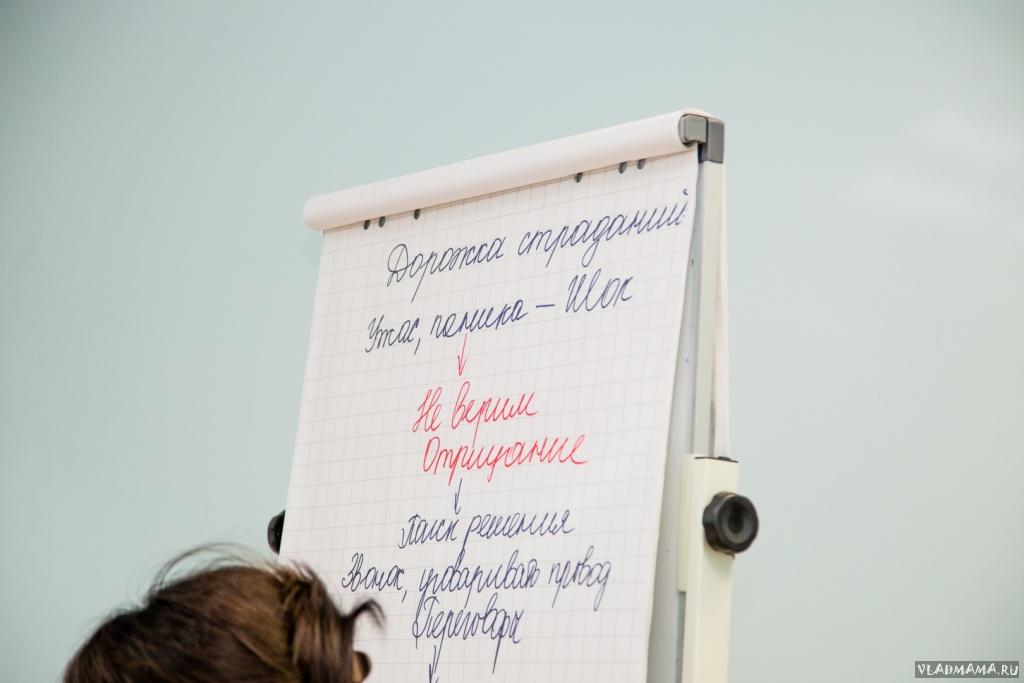 Дорожка страданий
Ужас, паника – Шок
Не верим
Отрицание
Поиск решения
Звонок, уговаривать
Переговоры
VLADMAMA.RU